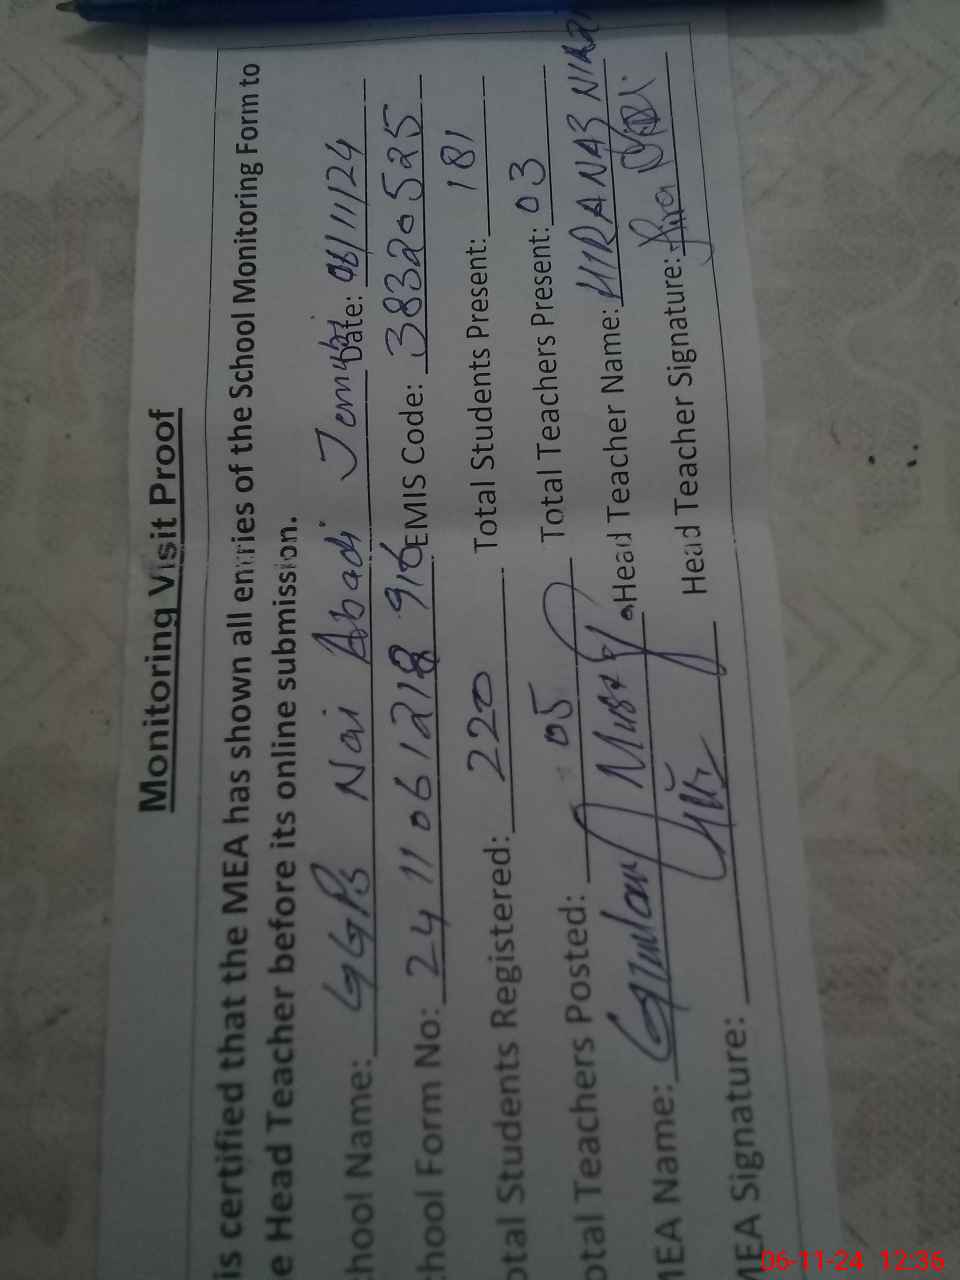 Monitoring Visit Proof
is certified that the MEA has shown all entries of the School Monitoring Form to
e Head Teacher before its online submission.
hool Name: GGPS Nai Abadi Date: 06/11/24
chool Form No: 24 11 06 1218 916 EMIS Code: 38320525
otal Students Registered: 220 Total Students Present: 181
otal Teachers Posted: 05 Total Teachers Present: 03
MEA Name: Ghulam Head Teacher Name: HIRA NAZ
MEA Signature: Head Teacher Signature:
06-11-24 12:36